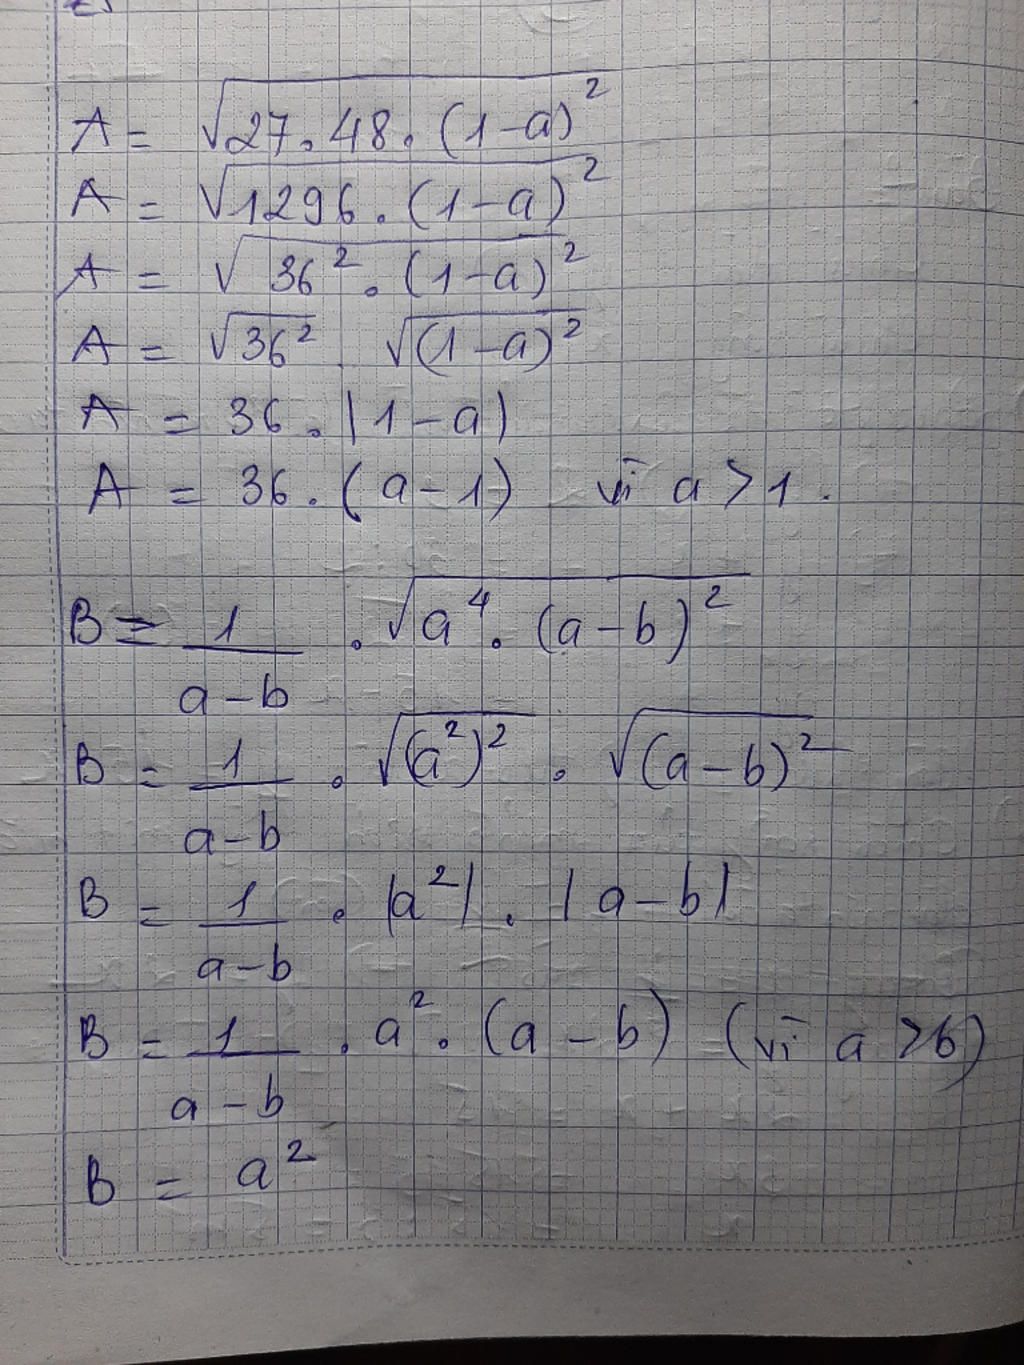 A = √27.48.(1-a)²
A = √1296.(1-a)²
A = √36².(1-a)²
A = √36² . √(1-a)²
A = 36.|1-a|
A = 36.(a-1) vì a > 1.
B = 1/(a-b) . √a⁴.(a-b)²
B = 1/(a-b) . √(a²)² . √(a-b)²
B = 1/(a-b) . |a²| . |a-b|
B = 1/(a-b) . a² . (a-b) (vì a > b)
B = a²